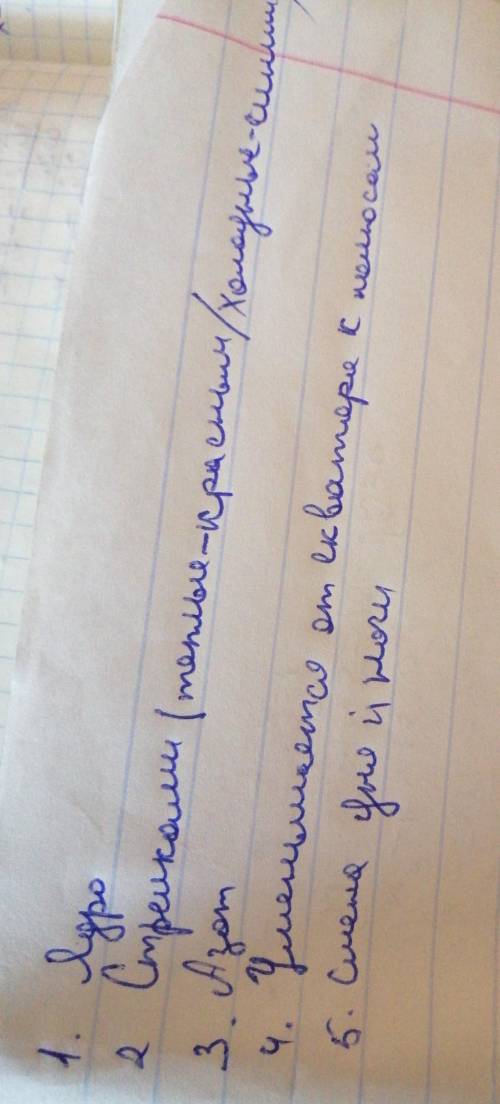 1. Ядро
2 Стрелками (теплые-красным/холодные-синим)
3. Азот
4. Уменьшается от екватора к полюсам
5. Смена дня й ночи